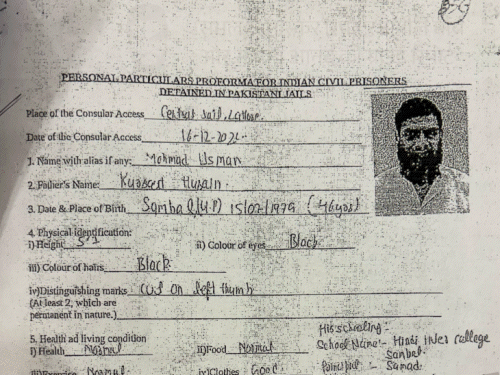 PERSONAL PARTICULARS PROFORMA FOR INDIAN CIVIL PRISONERS
DETAINED IN PAKISTANI JAILS
Place of the Consular Access Central Jail, Lahore.
Date of the Consular Access 16-12-
1. Name with alias if any: Mohmad Usman
2. Father's Name: Husain.
3. Date & Place of Birth (U.P) 15/07/1979 (46yrs)
4. Physical identification:
i) Height 5'7 ii) Colour of eyes Black
iii) Colour of hairs Black
iv)Distinguishing marks cut on left thumb
(At least 2, which are
permanent in nature.)
5. Health ad living condition
His schooling -
i) Health Normal ii)Food Normal School Name:- Hindi college
Sambal.
Normal iv)Clothes Good